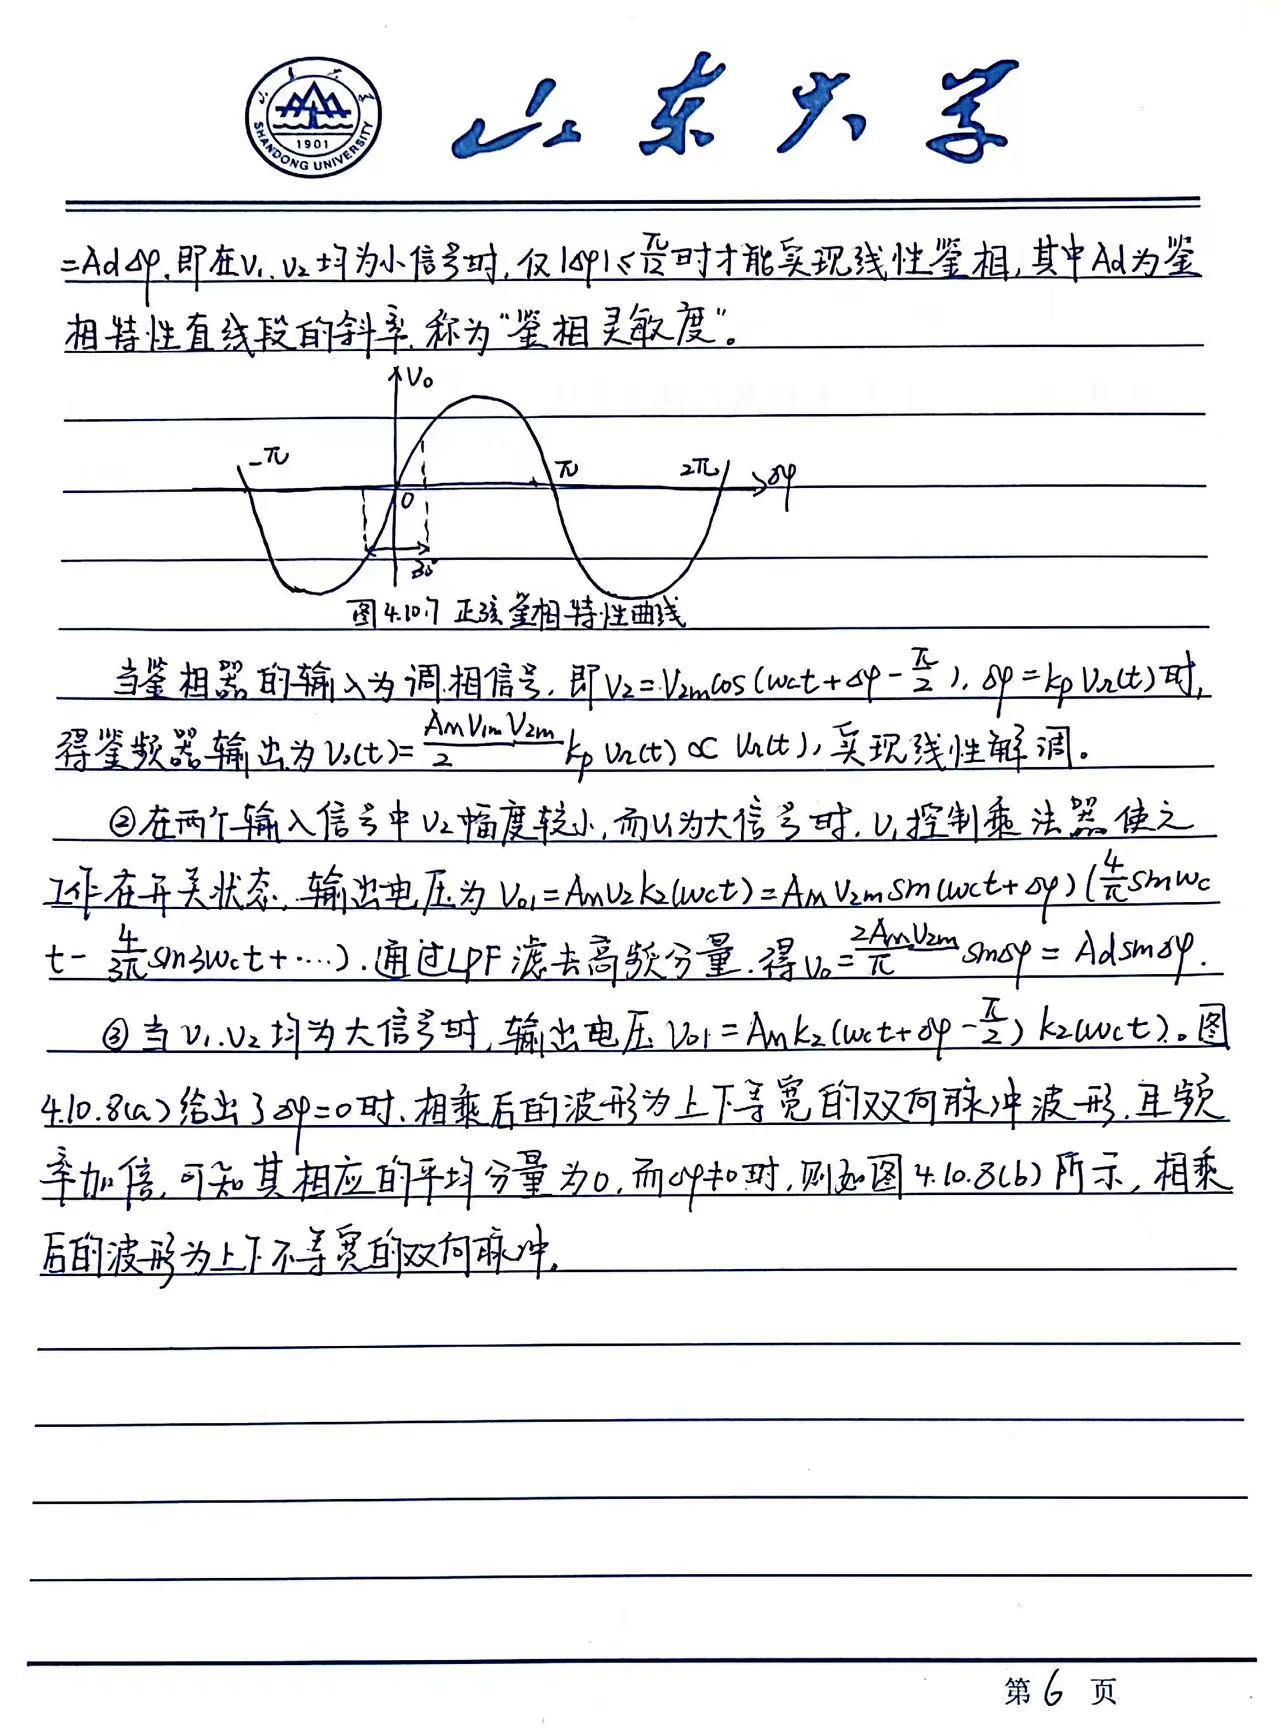 SHANDONG UNIVERSITY
1901
山东大学
=AdΔφ,即在V₁、V₂均为小信号时,仅|Δφ|≤π/12时才能实现线性鉴相,其中Ad为鉴
相特性直线段的斜率,称为“鉴相灵敏度”。
V₀
-π
π
2π
Δφ
0
30°
图4.10.7 正弦鉴相特性曲线
当鉴相器的输入为调相信号,即V₂=V₂mcos(ωct+Δφ-π/2),Δφ=kpVΩ(t)时,
得鉴频器输出为V₀(t)=AmV₁mV₂m/2 kpVΩ(t)∝VΩ(t),实现线性解调。
②在两个输入信号中V₂幅度较小,而V₁为大信号时,V₁控制乘法器使之
工作在开关状态,输出电压为V₀₁=AmV₂k₂(ωct)=AmV₂msin(ωct+Δφ)(4/π sinωc
t-4/3π sin3ωct+····).通过LPF滤去高频分量,得V₀=2AmV₂m/π sinΔφ=AdsinΔφ.
③当V₁、V₂均为大信号时,输出电压V₀₁=Amk₂(ωct+Δφ-π/2)k₂(ωct)。图
4.10.8(a)给出了Δφ=0时,相乘后的波形为上下等宽的双向脉冲波形,且频
率加倍,可知其相应的平均分量为0,而Δφ≠0时,则如图4.10.8(b)所示,相乘
后的波形为上下不等宽的双向脉冲.
第6页